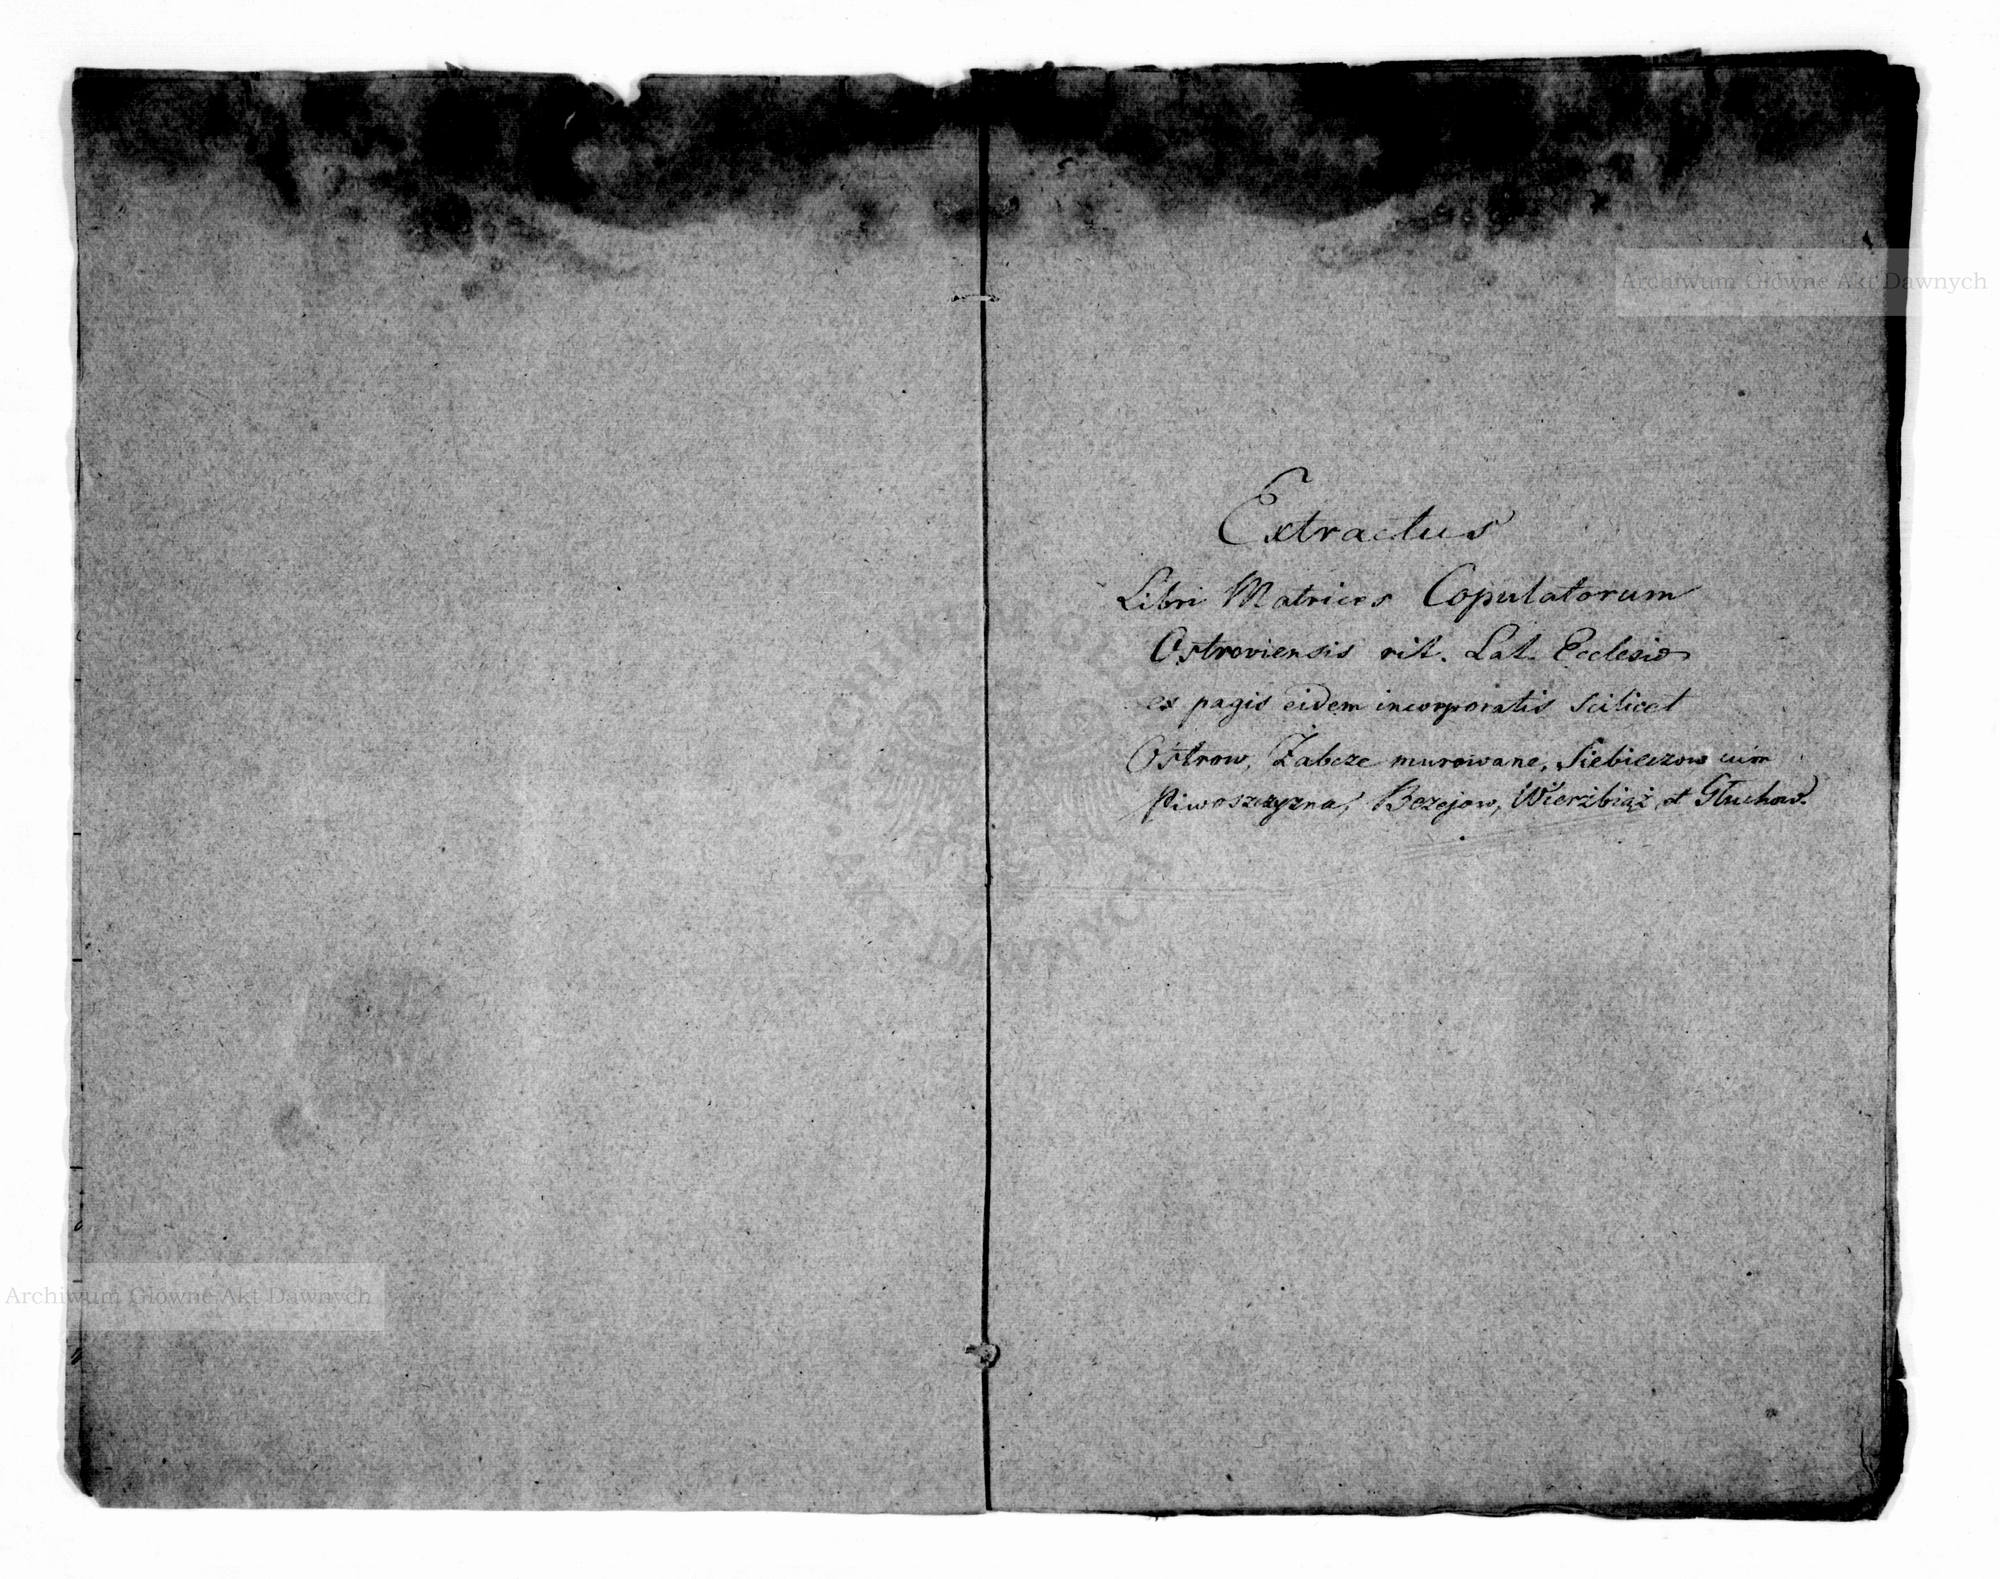 Extractus
Libri Matrices Copulatorum
Ostroviensis rit. Lat. Ecclesiæ
ex pagis eidem incorporatis scilicet
Ostrow, Żabcze murowane, Siebieczow cum
Piwoszczyzna, Bezejow, Wierzbiąż et Głuchow.
Archiwum Główne Akt Dawnych
Archiwum Główne Akt Dawnych
ARCHIWUM GŁÓWNE
AKT DAWNYCH